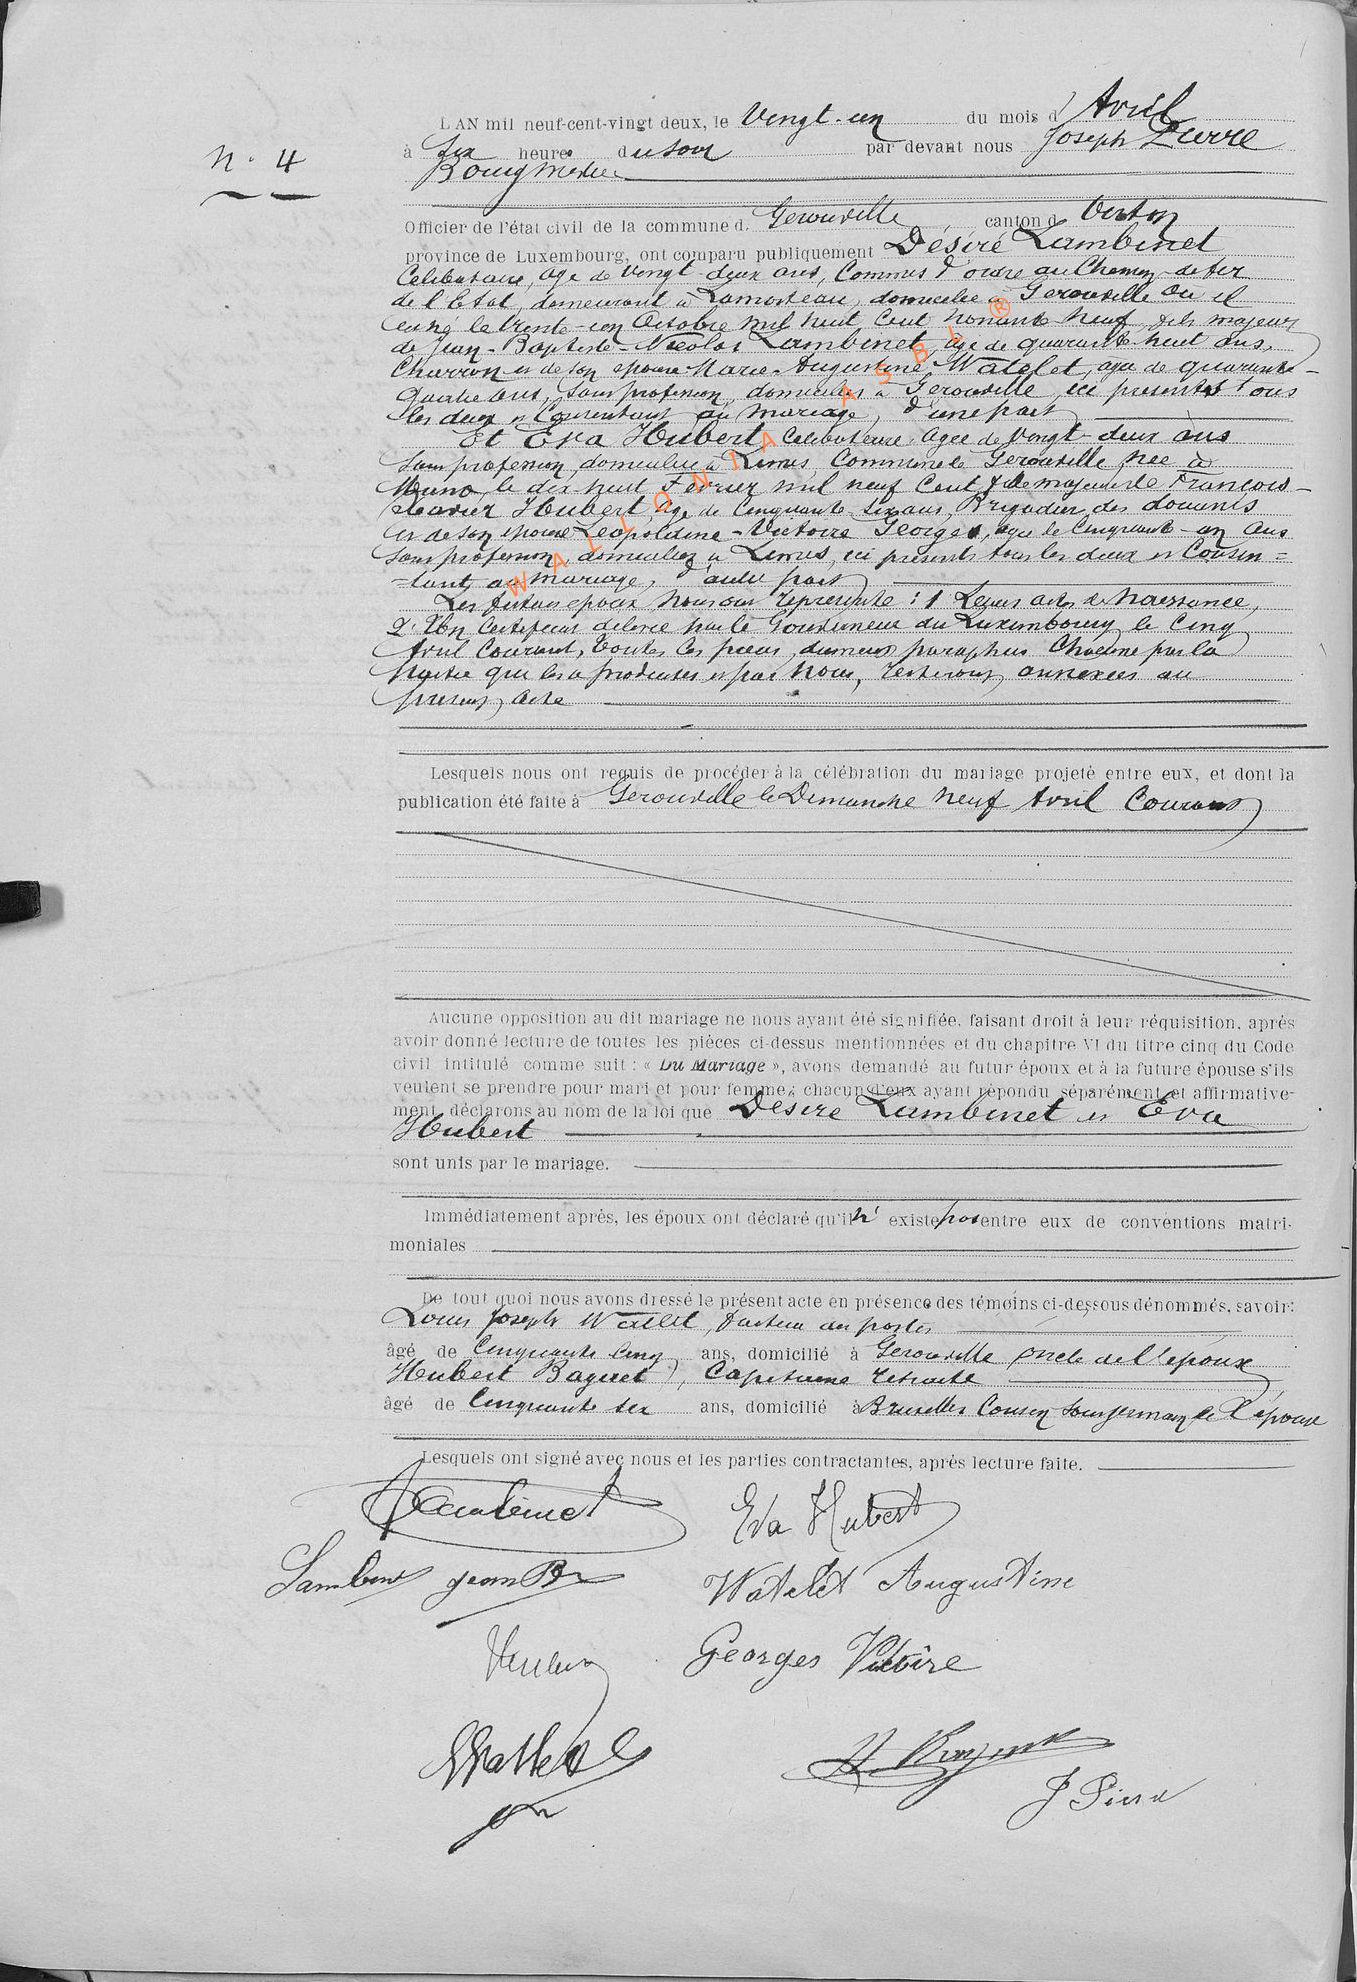 N° 4
L'AN mil neuf-cent-vingt deux, le Vingt-un du mois d'Avril
à six heures du soir par devant nous Joseph Pierre
Bourgmestre
Officier de l'état civil de la commune d. Gerouville canton d Virton
province de Luxembourg, ont comparu publiquement Désiré Lambinet
Celibataire, age de Vingt-deux ans, Commis d'ordre au Chemin-de fer
de l'Etat, demeurant à Lamorteau, domicilié à Gerouville où il
est né le trente-un Octobre mil huit Cent nonante neuf, fils majeur
de Jean-Baptiste-Nicolas Lambinet, age de quarante huit ans,
Charron et de son epouse Marie-Augustine Watelet, agee de quarante-
quatre ans, sans profession, domiciliés à Gerouville, ici présents tous
les deux et Consentant au mariage, d'une part
Et Eva Hubert Celibataire agee de Vingt-deux ans
sans profession, domiciliée à Limes, Commune de Gerouville née à
Muno, le dix huit Fevrier mil neuf Cent, fille majeure de François-
Xavier Hubert, age de Cinquante six ans, Brigadier des douanes
et de son epouse Leopoldine-Victoire Georges, agee de Cinquante-un ans
sans profession, domiciliés à Limes, ici présents tous les deux et Consen=
=tant au mariage, d'autre part
Les futurs epoux nous ont représenté : 1 Leurs actes de Naissance,
2° Un Certificat délivré par le Gouverneur du Luxembourg le Cinq
Avril Courant, toutes les pièces, dument paraphées Chacune par la
partie qui les a produites et par Nous, resteront annexées au
présent acte
Lesquels nous ont requis de procéder à la célébration du mariage projeté entre eux, et dont la
publication été faite à Gerouville le Dimanche neuf Avril Courant
Aucune opposition au dit mariage ne nous ayant été signifiée, faisant droit à leur réquisition, après
avoir donné lecture de toutes les pièces ci-dessus mentionnées et du chapitre VI du titre cinq du Code
civil intitulé comme suit : « Du Mariage », avons demandé au futur époux et à la future épouse s'ils
veulent se prendre pour mari et pour femme ; chacun d'eux ayant répondu séparément et affirmative-
ment, déclarons au nom de la loi que Désiré Lambinet et Eva
Hubert
sont unis par le mariage.
Immédiatement après, les époux ont déclaré qu'il n' existe pas entre eux de conventions matri-
moniales
De tout quoi nous avons dressé le présent acte en présence des témoins ci-dessous dénommés, savoir:
Louis Joseph Watelet, facteur des postes
âgé de Cinquante Cinq ans, domicilié à Gerouville oncle de l'époux
Hubert Baguet, Capitaine retraité
âgé de Cinquante six ans, domicilié à Bruxelles Cousin sousgermain de l'épouse
Lesquels ont signé avec nous et les parties contractantes, après lecture faite.
Lambinet Eva Hubert
Lambinet Jean Bte Watelet Augustine
Georges Victoire
J Pierre
WALLONIA ASBL ®